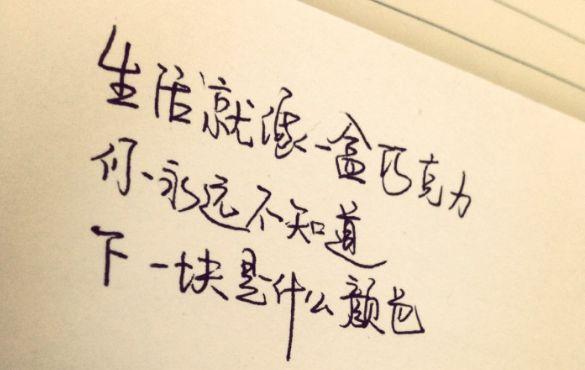 生活就像一盒巧克力
你永远不知道
下一块是什么颜色